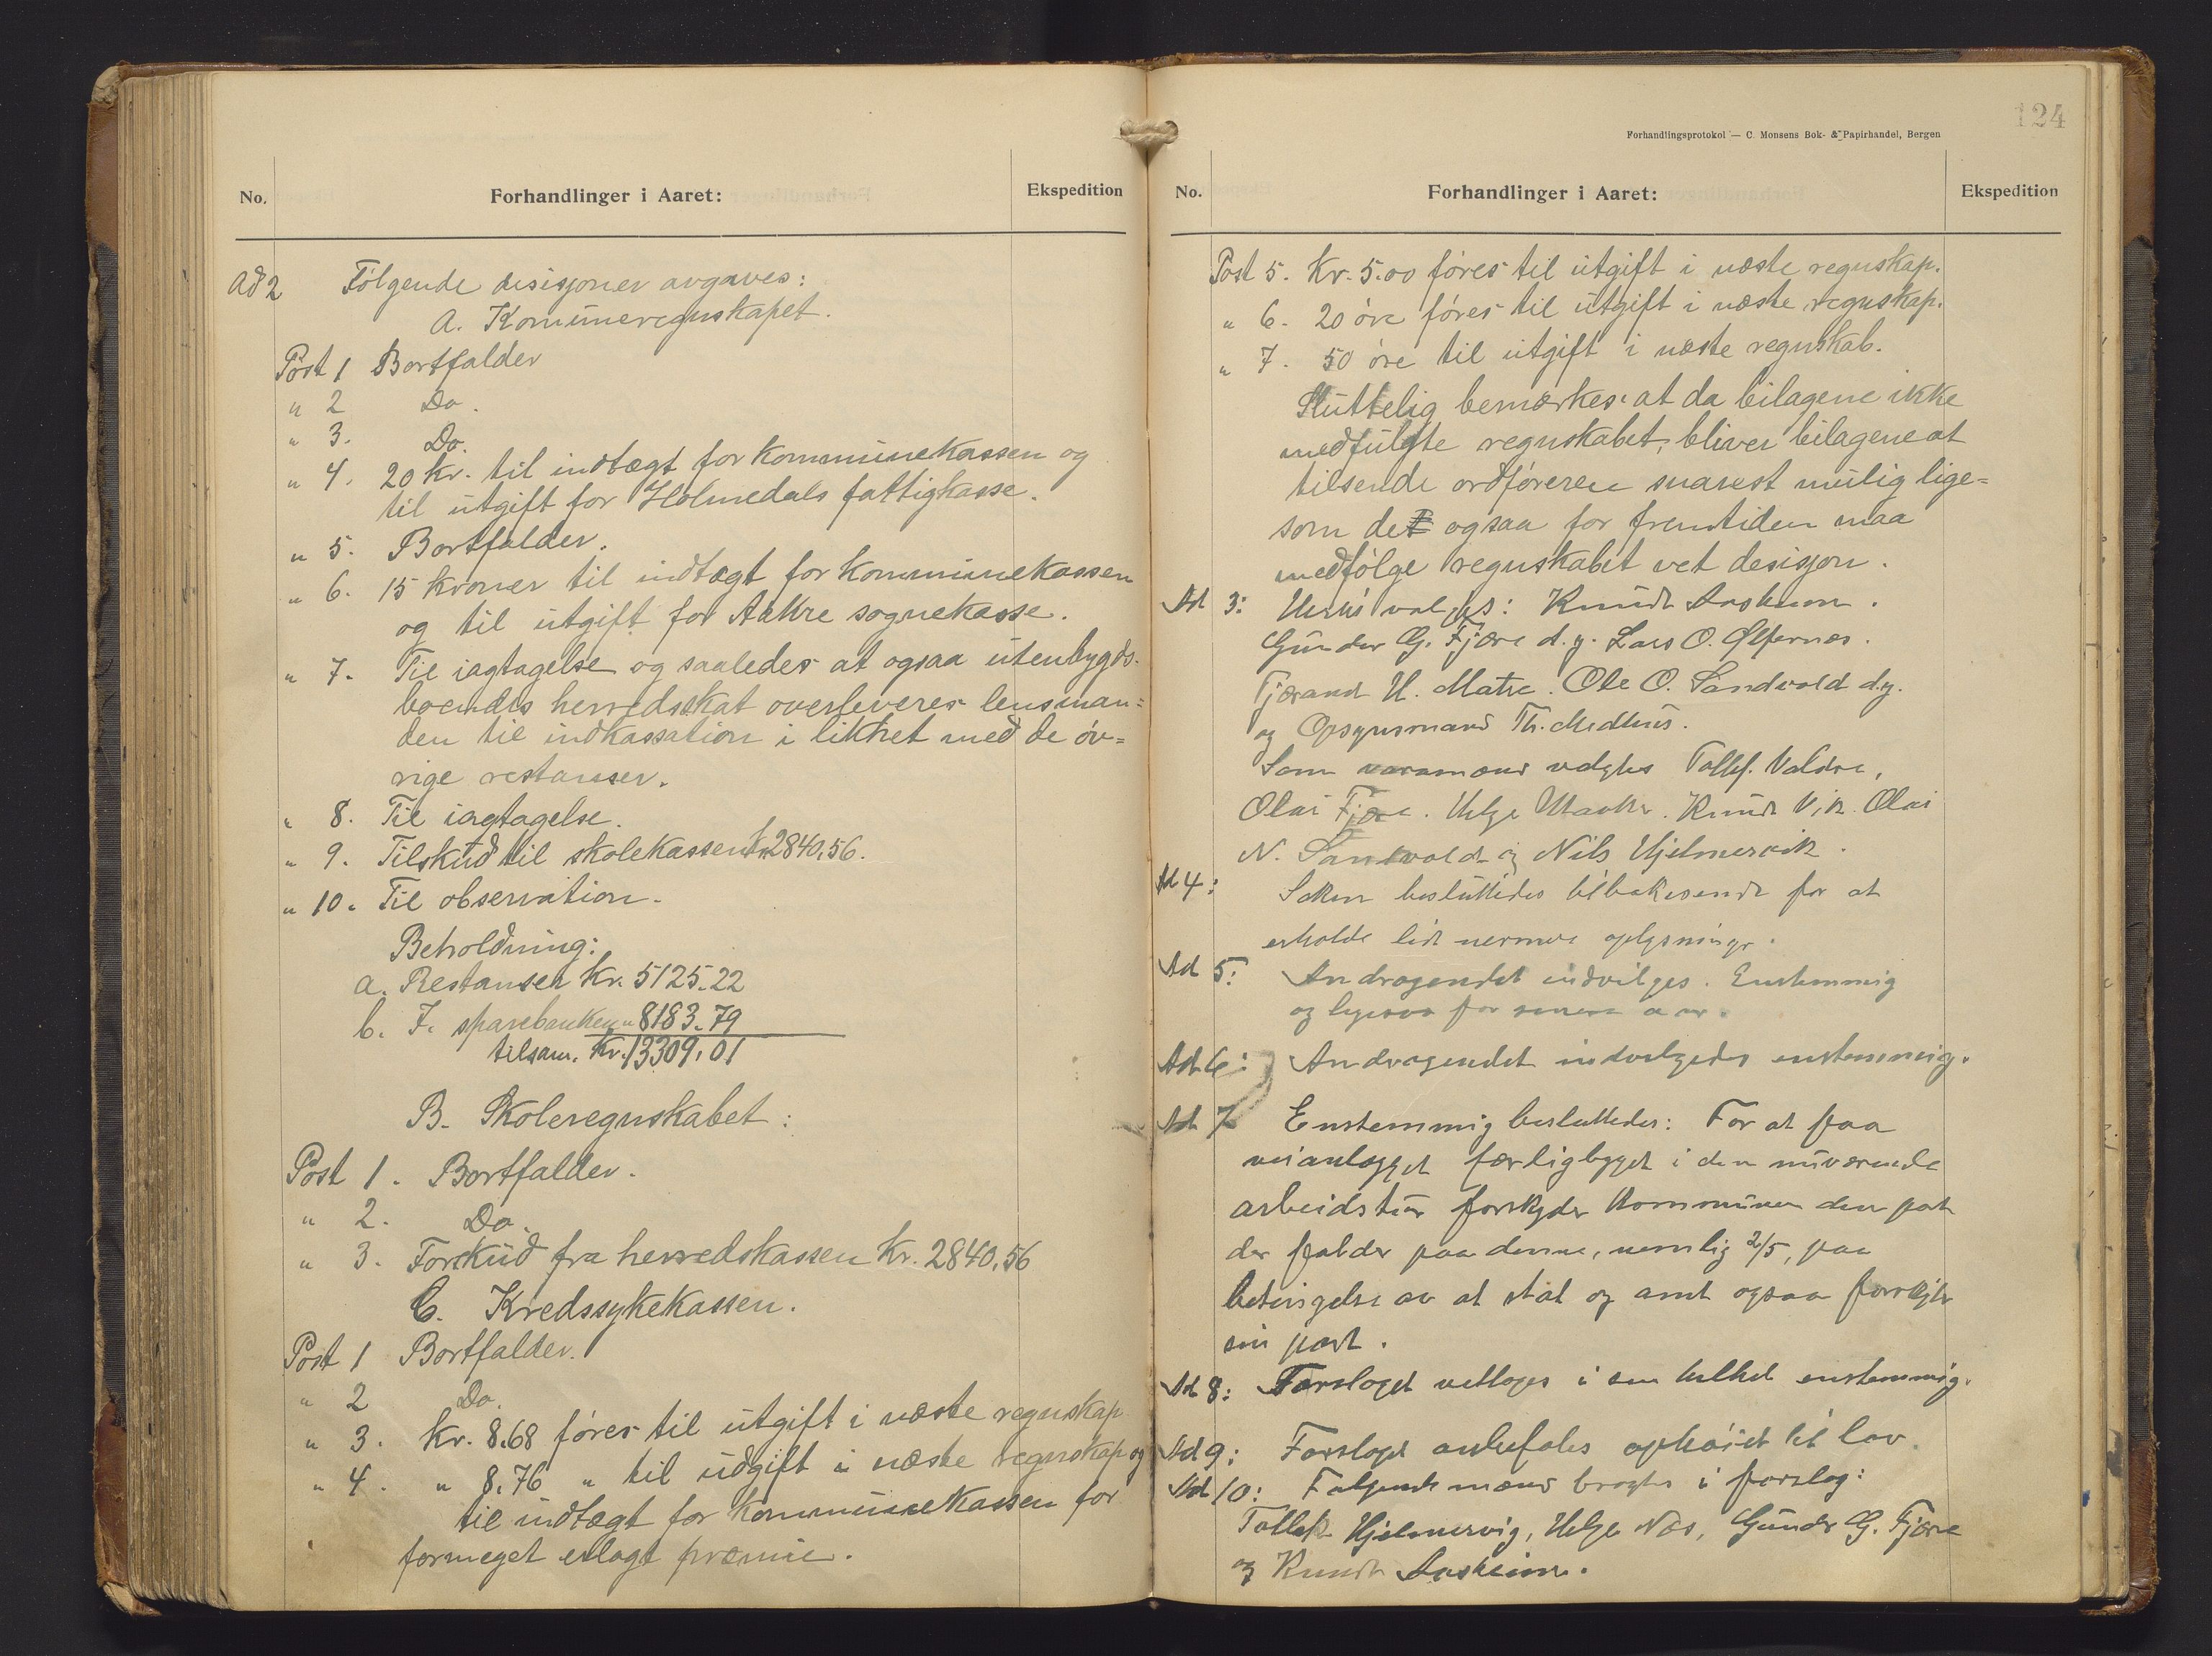 No.
Forhandlinger i Aaret:
Ekspedition
Ad 2 Følgende desisjoner avgaves:
A. Komuneregnskapet.
Post 1 Bortfalder
" 2 Do.
" 3. Do.
" 4. 20 kr. til indtægt for kommunekassen og
til utgift for Holmedals fattigkasse.
" 5. Bortfalder.
" 6. 15 kroner til indtægt for kommunekassen
og til utgift for Aakre sognekasse.
" 7. Til iagtagelse og saaledes at ogsaa utenbygds-
boendes herredsskat overleveres lensman=
den til indkassation i likhet med de øv=
rige restanser.
" 8. Til iagtagelse.
" 9. Tilskud til skolekassen kr 2840,56.
" 10. Til observation.
Beholdning:
a. Restanser kr. 5125.22
b. I. sparebanken " 8183.79
tilsam. kr. 13309,01
B. Skoleregnskabet:
Post 1. Bortfalder.
" 2. Do.
" 3. Forskud fra herredskassen kr. 2840,56
C. Kredssykekassen.
Post 1 Bortfalder.
" 2 Do.
" 3. kr. 8.68 føres til utgift i næste regnskap
" 4. " 8.76 " til udgift i næste regnskap og
til indtægt for kommunekassen for
formeget erlagt præmie.
124
Forhandlingsprotokol — C. Monsens Bok- & Papirhandel, Bergen
No.
Forhandlinger i Aaret:
Ekspedition
Post 5. kr. 5.00 føres til utgift i næste regnskap.
" 6. 20 øre føres til utgift i næste regnskap.
" 7. 50 øre til utgift i næste regnskab.
Sluttelig bemærkes at da bilagene ikke
medfulgte regnskabet, bliver bilagene at
tilsende ordføreren snarest mulig lige=
som de ogsaa for fremtiden maa
medfølge regnskabet vet desisjon.
Ad 3: valgtes: Knudt Aasheim.
Gunder G. Fjære d.y. Lars O. Ølfernæs.
Tjærand H. Matre. Ole O. Sandvold d.y.
og Opsynsmand Th. Medhus.
Som varamænd valgtes Tollef. Valdre,
Olai Fjære. Helge Knudt Vik. Olai
N. Sandvold og Nils Hjelmervik.
Ad 4: Saken besluttedes tilbakesendt for at
erholde lidt nermere oplysninger.
Ad 5: Andragendet indvilges. Enstemmig
og ligesaa for senere aar.
Ad 6: Andragendet indvilgedes enstemmig.
Ad 7 Enstemmig besluttedes: For at faa
veianlægget færligbygget i den nuværende
arbeidstur forskyder Kommunen den part
der falder paa denne, nemlig 2/5, paa
betingelse av at stat og amt ogsaa forskyter
sin part.
Ad 8: Forslaget vettoges i sin helhet enstemmig.
Ad 9: Forslaget anbefales ophøiet til lov.
Ad 10: Følgende mænd bragtes i forslag:
Tollef Hjelmervig, Helge Næs, Gunder G. Fjære
og Knudt Aasheim.